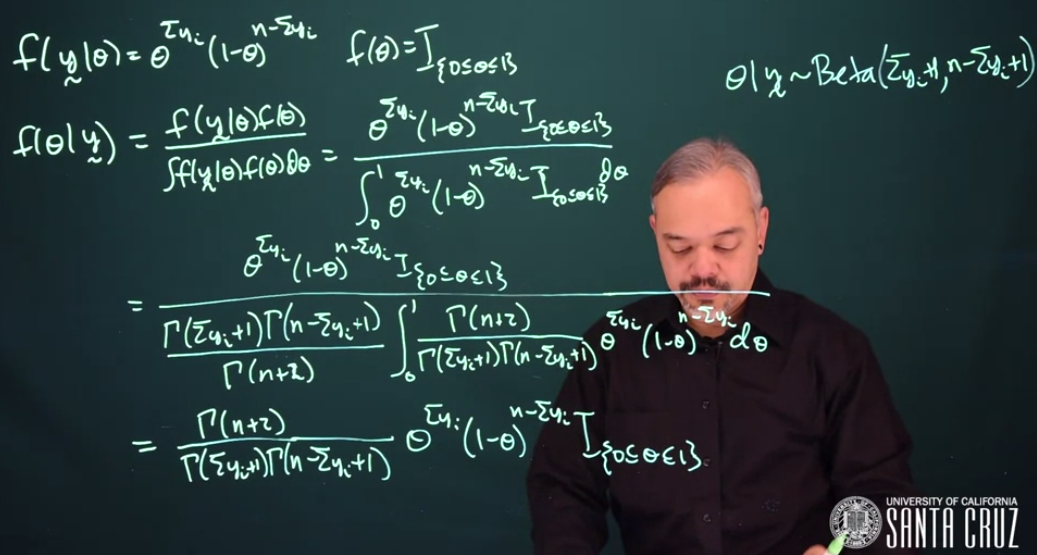 f(y|θ) = θ^{Σyᵢ} (1-θ)^{n-Σyᵢ}   f(θ) = I_{{0≤θ≤1}}
θ|y ~ Beta(Σyᵢ+1, n-Σyᵢ+1)
f(θ|y) = f(y|θ)f(θ) / ∫f(y|θ)f(θ)dθ = θ^{Σyᵢ} (1-θ)^{n-Σyᵢ} I_{{0≤θ≤1}} / ∫₀¹ θ^{Σyᵢ} (1-θ)^{n-Σyᵢ} I_{{0≤θ≤1}} dθ
= θ^{Σyᵢ} (1-θ)^{n-Σyᵢ} I_{{0≤θ≤1}} / Γ(Σyᵢ+1)Γ(n-Σyᵢ+1) / Γ(n+2) ∫₀¹ Γ(n+2) / Γ(Σyᵢ+1)Γ(n-Σyᵢ+1) θ^{Σyᵢ} (1-θ)^{n-Σyᵢ} dθ
= Γ(n+2) / Γ(Σyᵢ+1)Γ(n-Σyᵢ+1) θ^{Σyᵢ} (1-θ)^{n-Σyᵢ} I_{{0≤θ≤1}}
UNIVERSITY OF CALIFORNIA
SANTA CRUZ